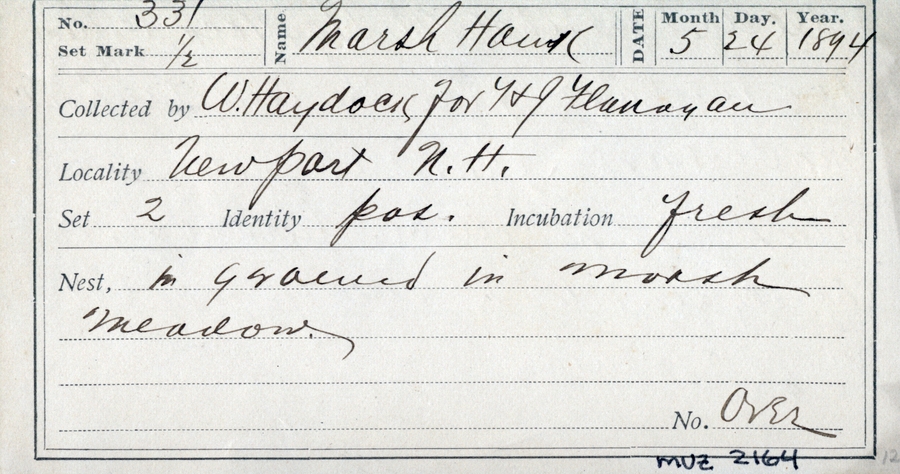 No. 331 Name Marsh Hawk DATE Month Day. Year.
Set Mark 1/2 5 24 1894
Collected by W. Haydock for H J Flanagan
Locality Newport N. H.
Set 2 Identity pos. Incubation fresh
Nest, in ground in marsh
meadow.
No. Over
MVZ 2164
12